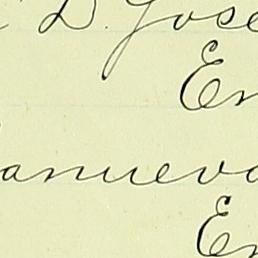 D. Jose
En
anueva
En